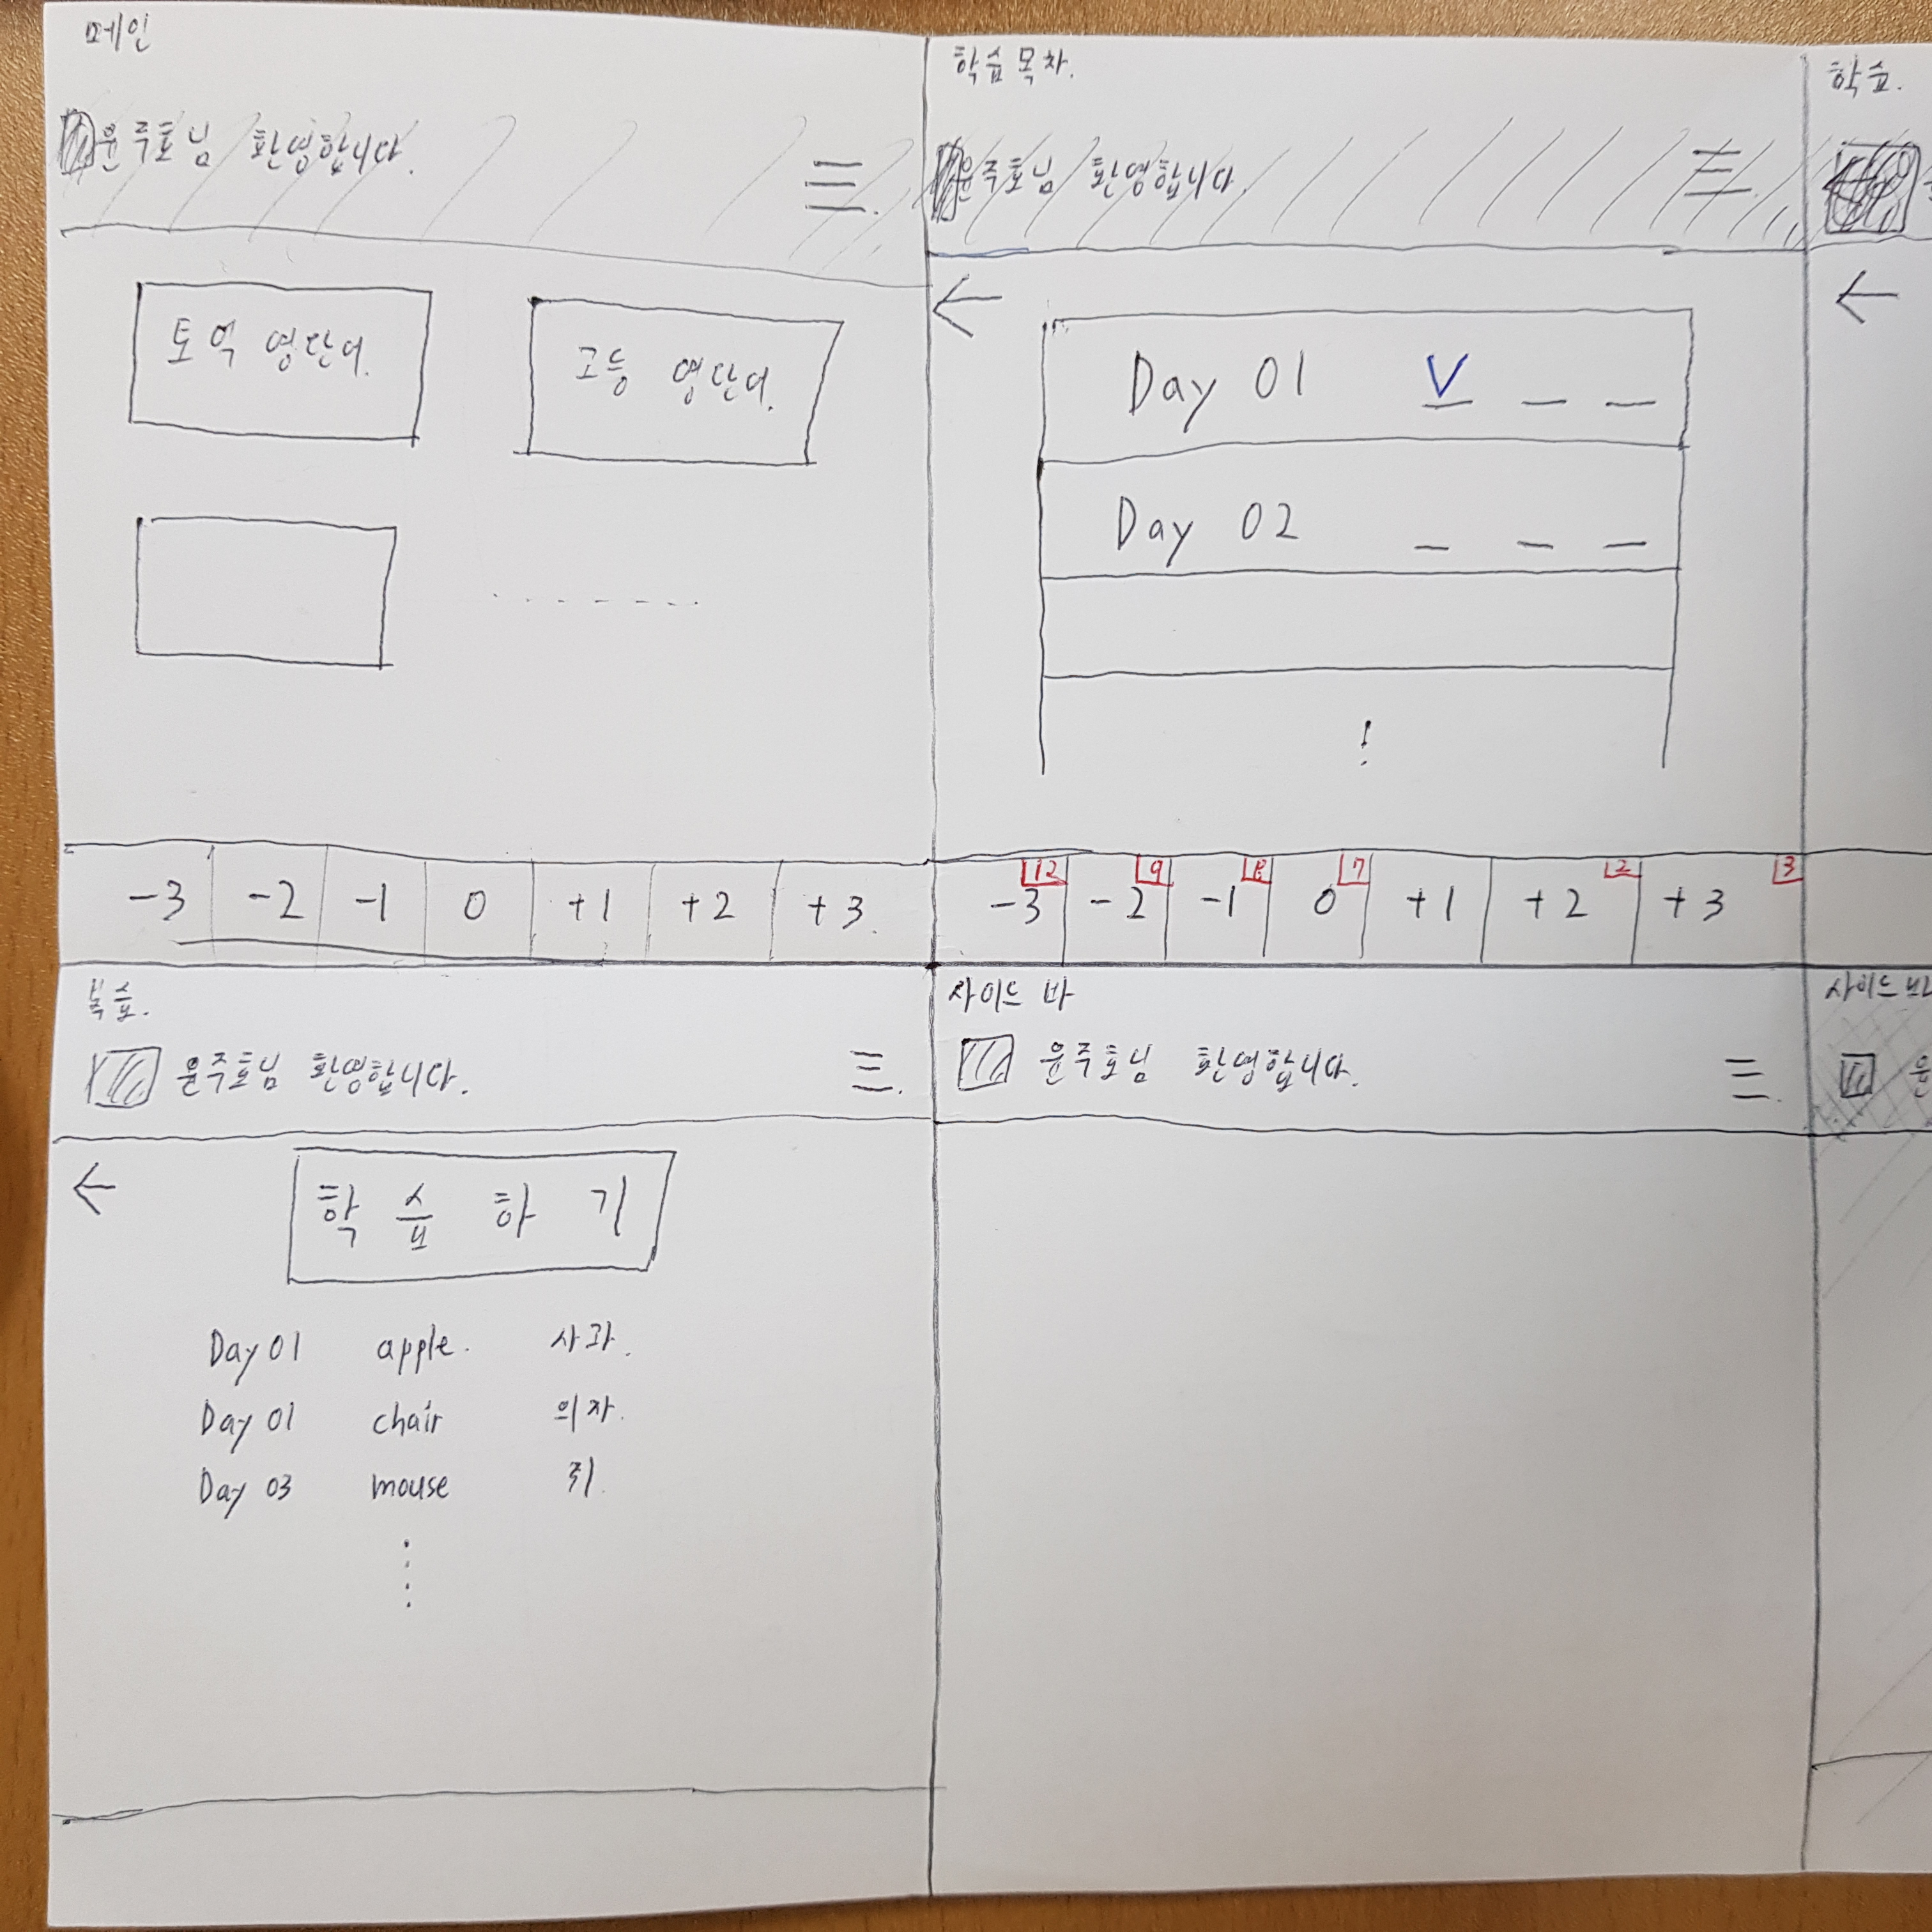 메인
윤주호님 환영합니다.
토익 영단어.
고등 영단어.
-3 -2 -1 0 +1 +2 +3.
학습목차.
윤주호님 환영합니다.
Day 01 V
Day 02
12 9 8 7 2 3
-3 -2 -1 0 +1 +2 +3
학습.
복습.
윤주호님 환영합니다.
학습하기
Day 01 apple. 사과.
Day 01 chair 의자.
Day 03 mouse 쥐.
사이드 바
윤주호님 환영합니다.
사이드 바
윤